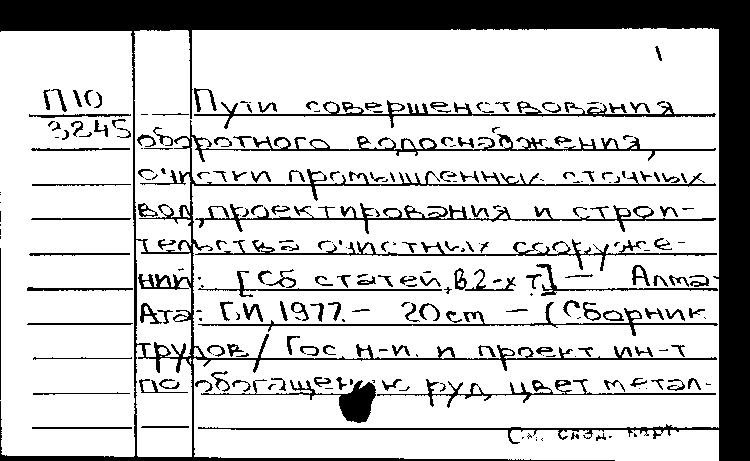 1
П10
3245
Пути совершенствования
оборотного водоснабжения,
очистки промышленных сточных
вод, проектирования и строи-
тельства очистных сооруже-
ний: [Сб статей, В 2-х т.] — Алма-
Ата: Б.И, 1977. — 20 cm — (Сборник
трудов / Гос. н-и. и проект. ин-т
по обогащению руд цвет метал-
См. след. карт.